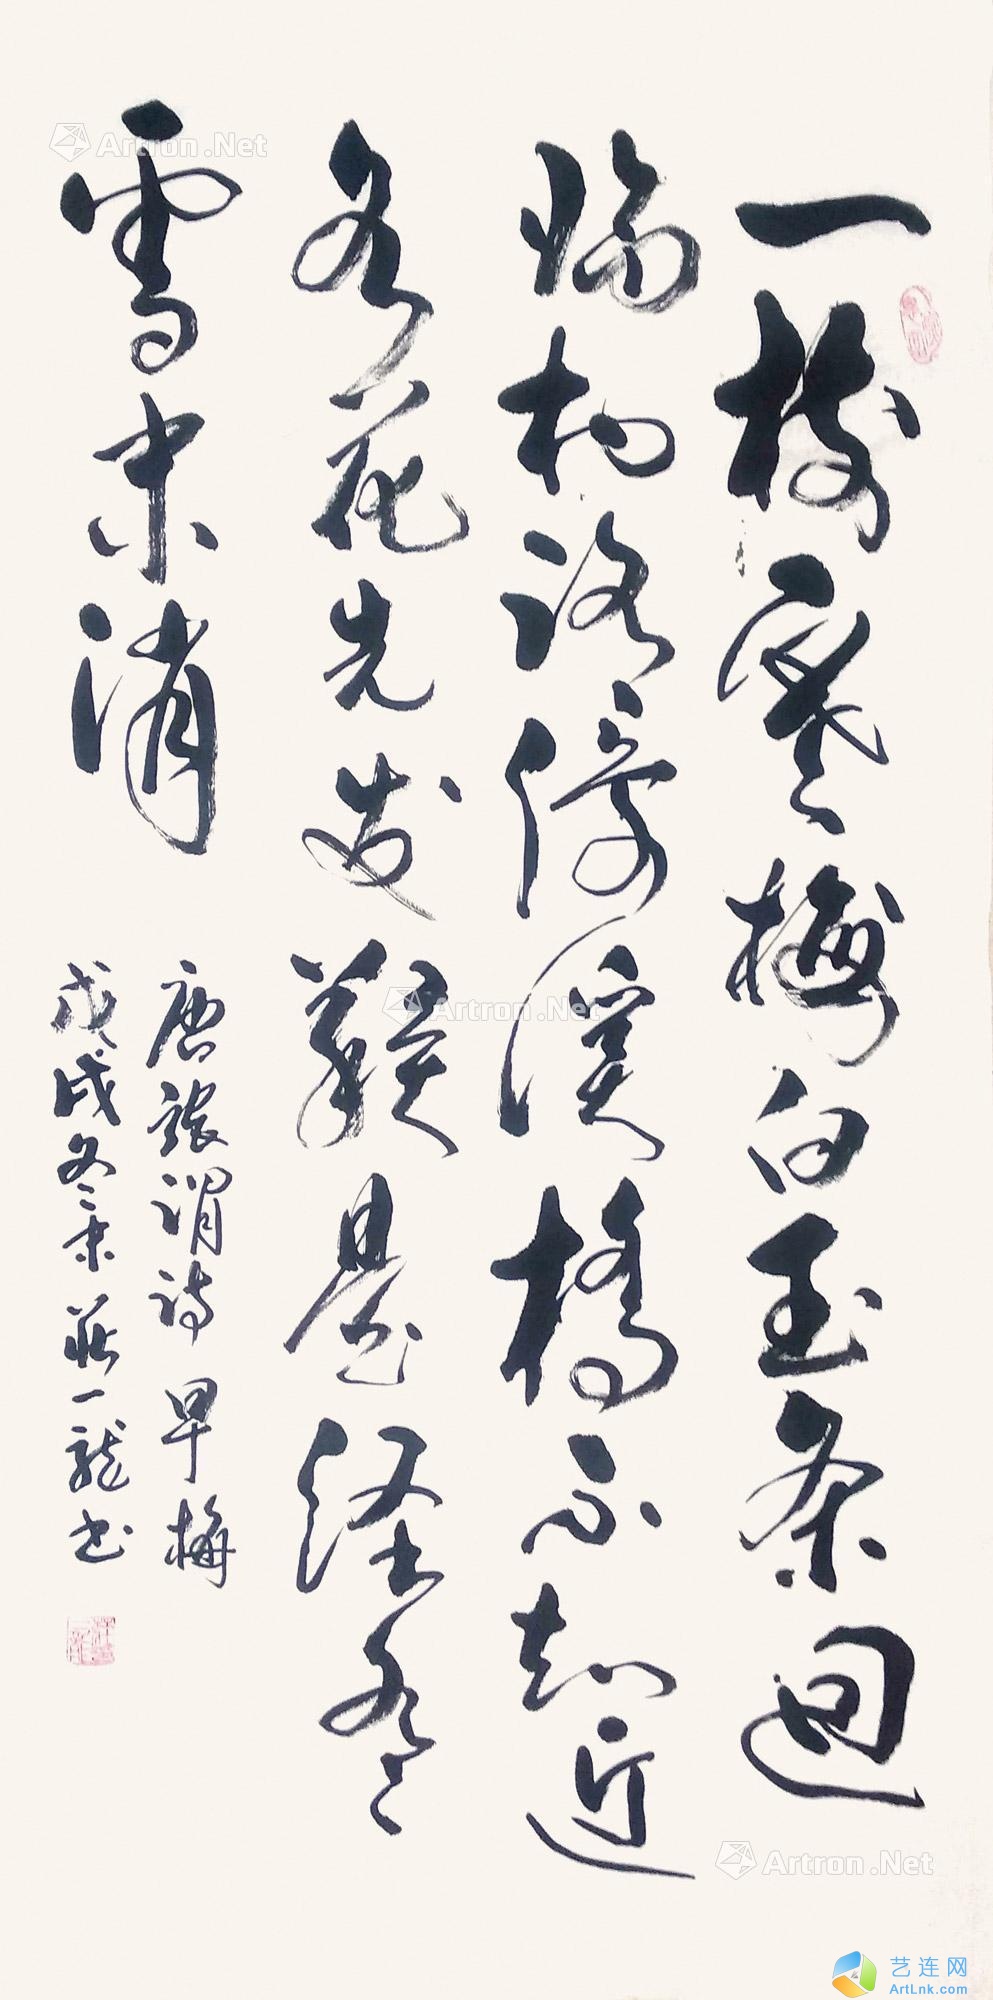 一樹寒梅白玉条迴
臨村路傍溪橋不知近
水花先发疑是经冬
雪未消
唐張謂詩早梅
戊戌冬末莊一龍书
Artron.Net
Artron.Net
Artron.Net
艺连网
ArtLnk.com